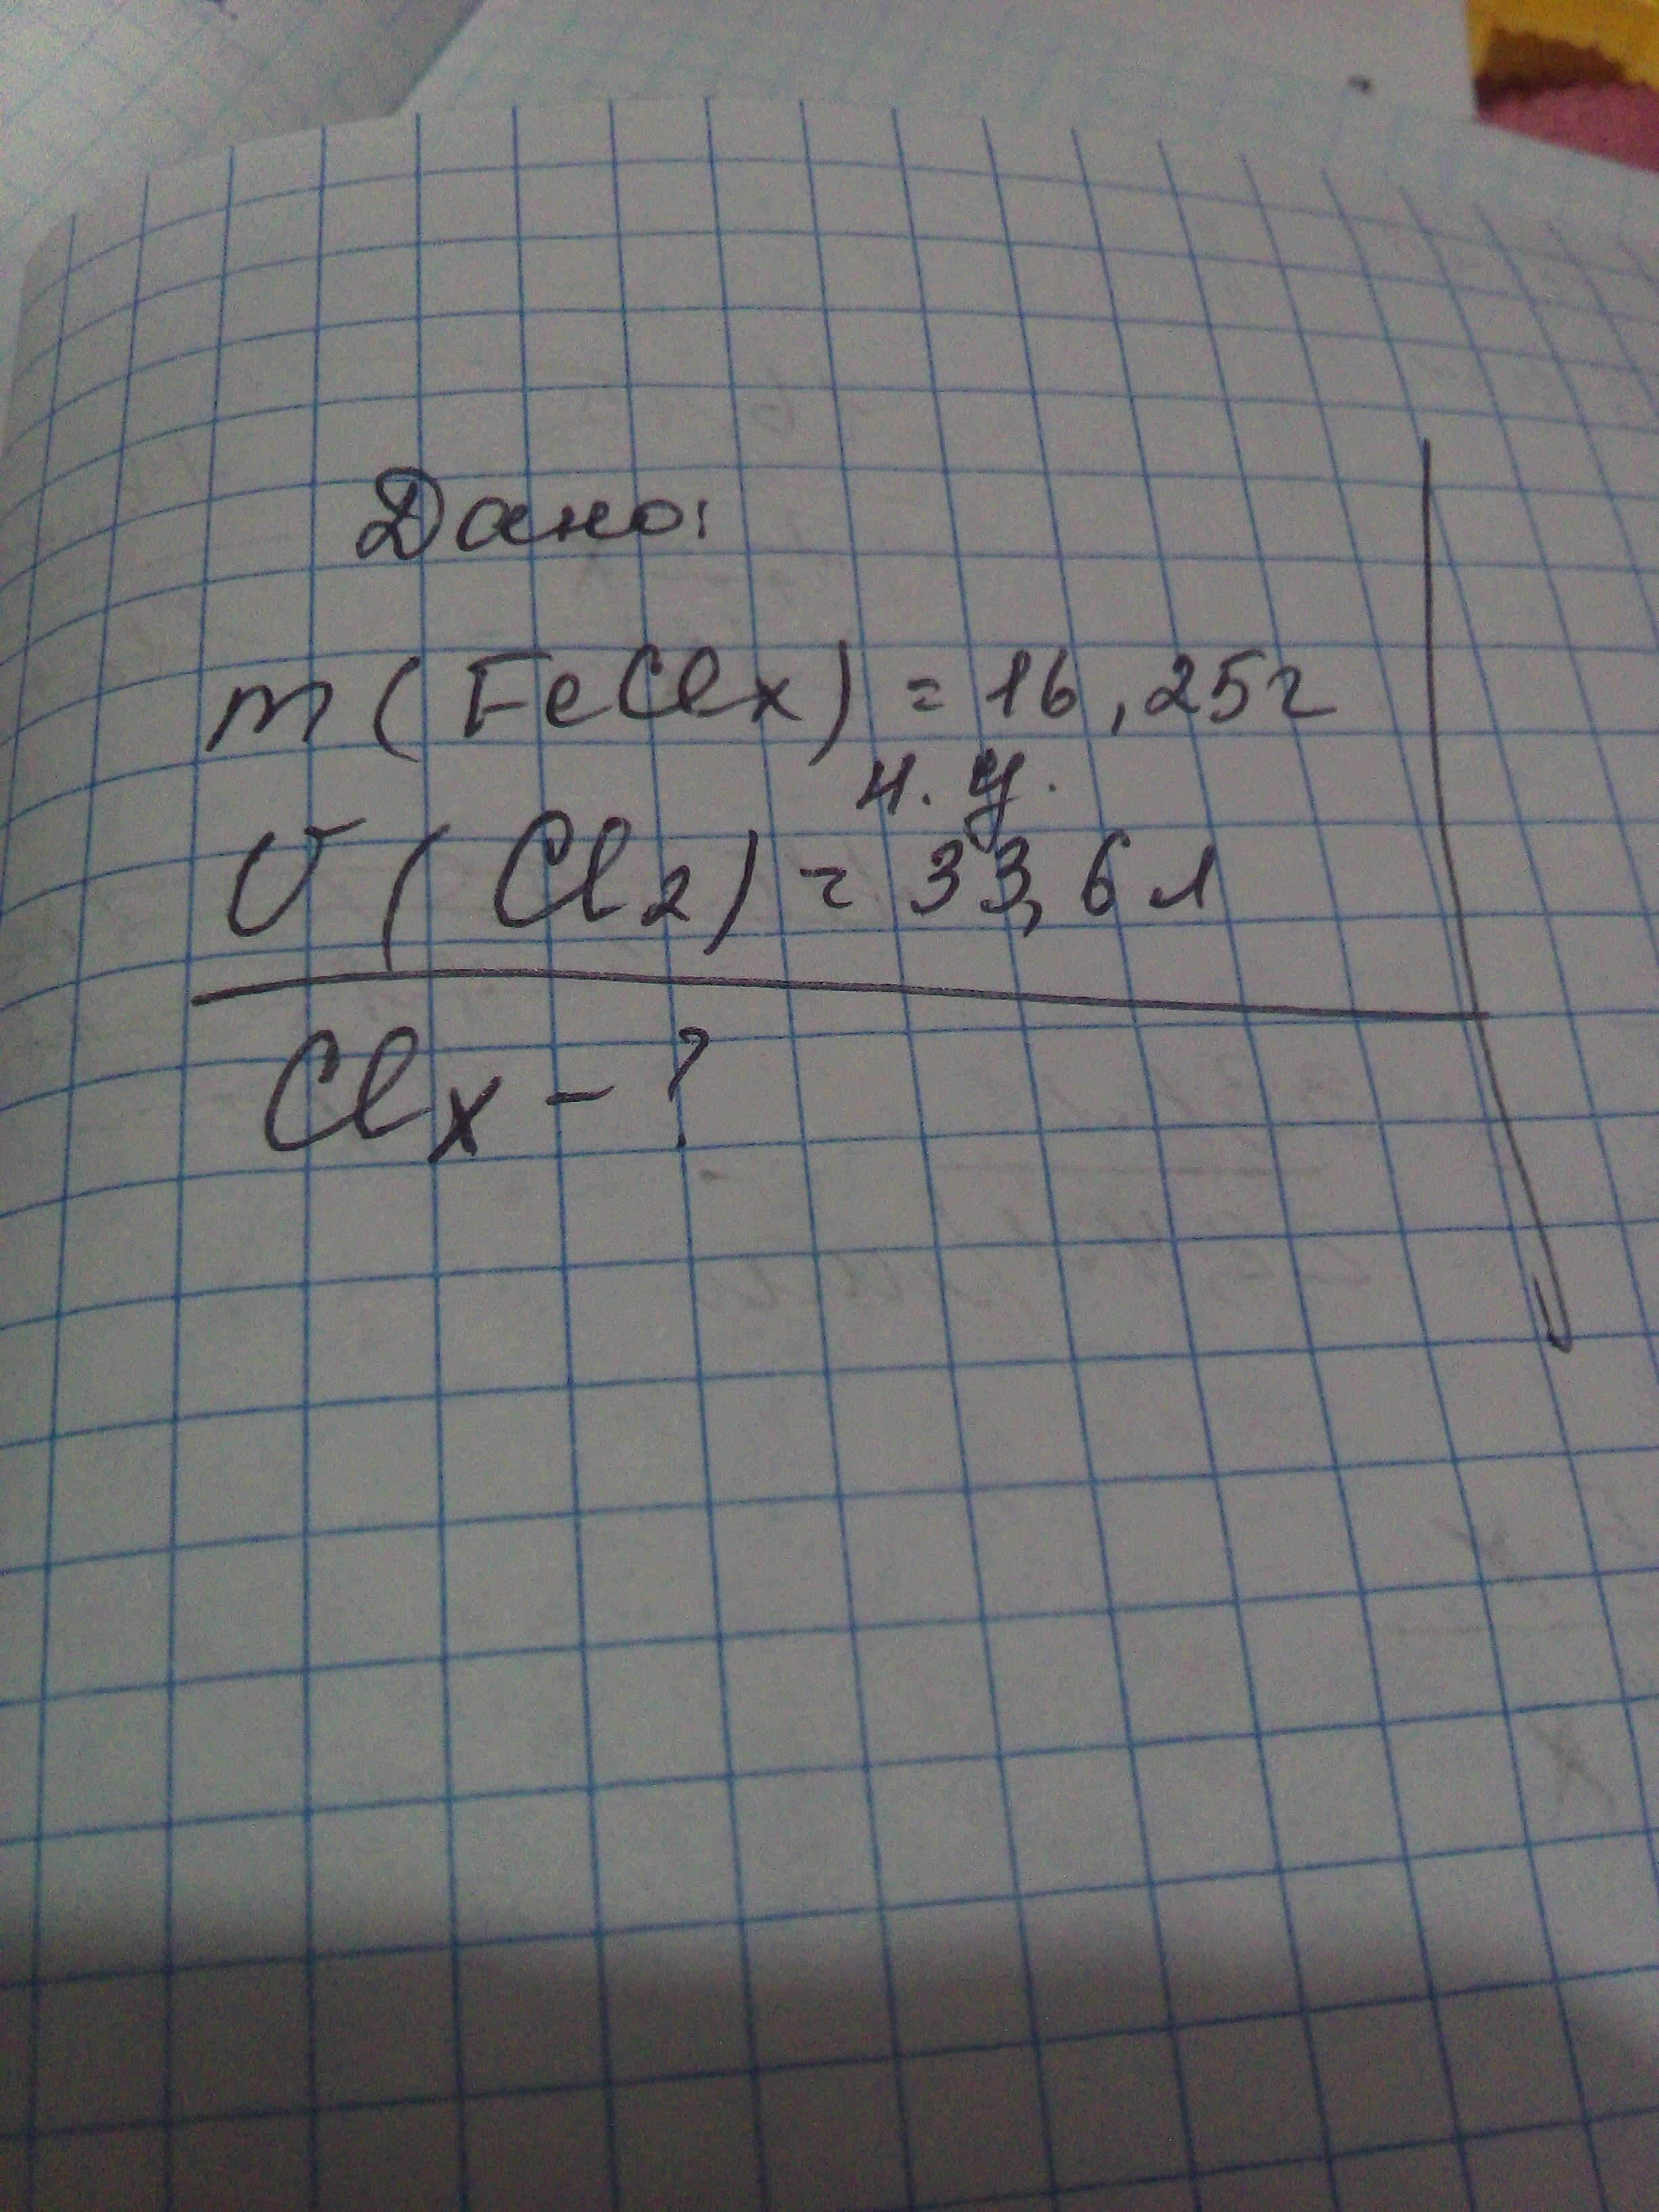 Дано:
m(FeClx) = 16,25г
н.у.
V(Cl2) = 33,6л
Clx - ?